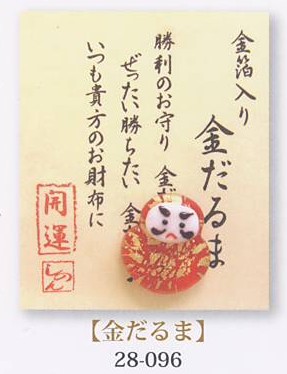 金箔入り
金だるま
勝利のお守り 金だ
ぜったい勝ちたい 金
いつも貴方のお財布に
開運
しのん
【金だるま】
28-096